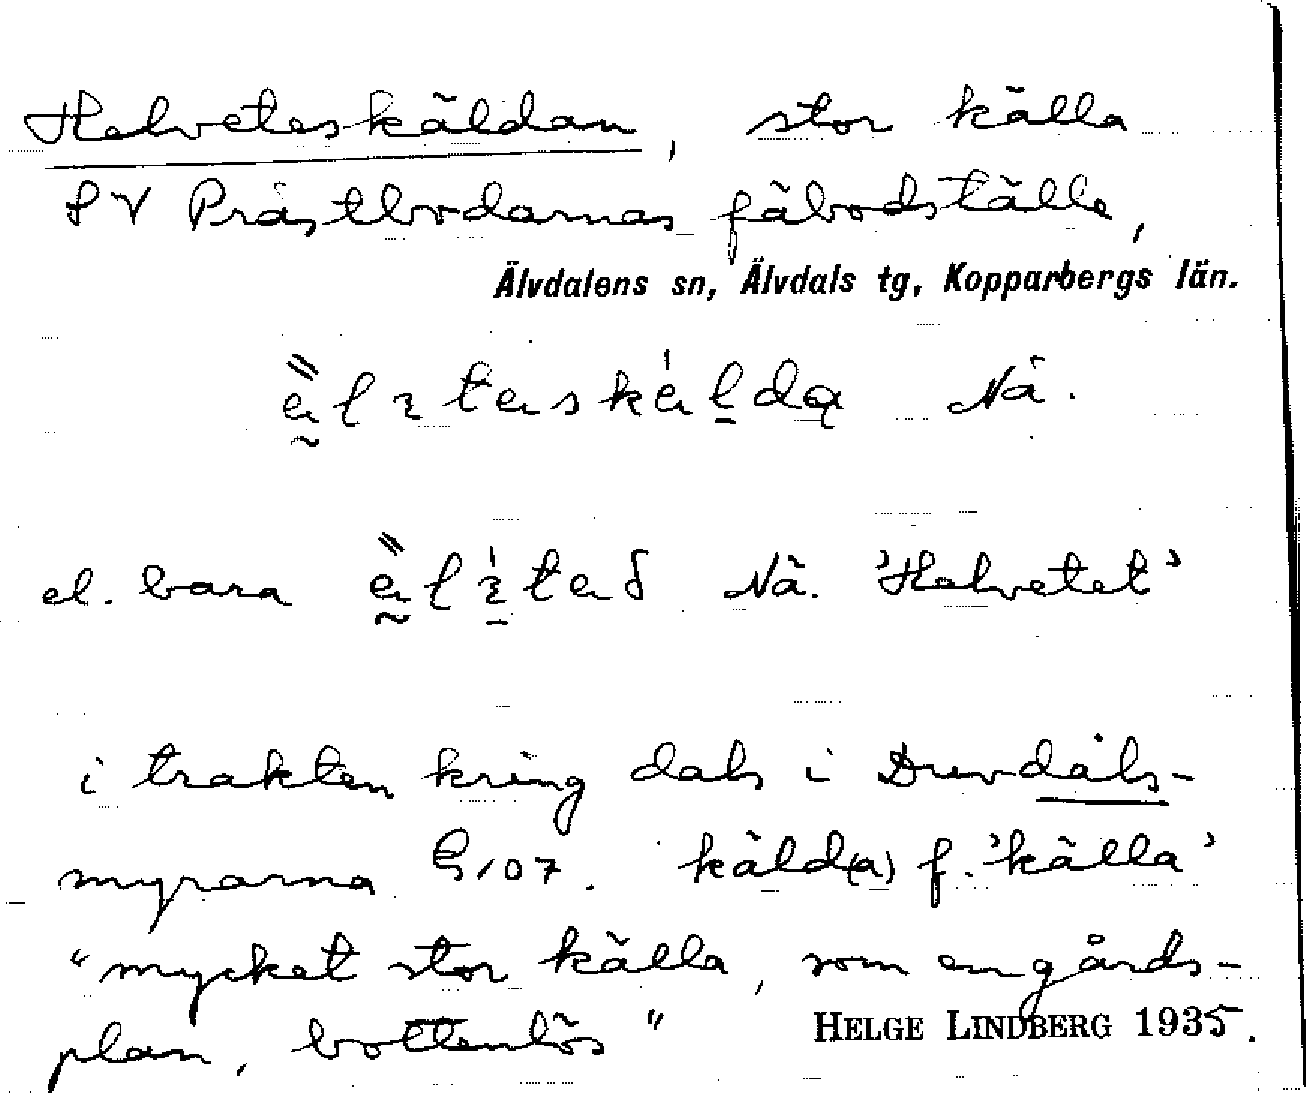 Helveteskäldan, stor källa
SV Prästbodarnas fäbodställe,
Älvdalens sn, Älvdals tg, Kopparbergs län.
Nä.
el. bara Nä. 'Helvetet'
i trakten kring dals i Drevdals-
myrarna G107. käld(a) f. 'källa'
"mycket stor källa, som en gårds-
plan, bottenlös"
HELGE LINDBERG 1935.